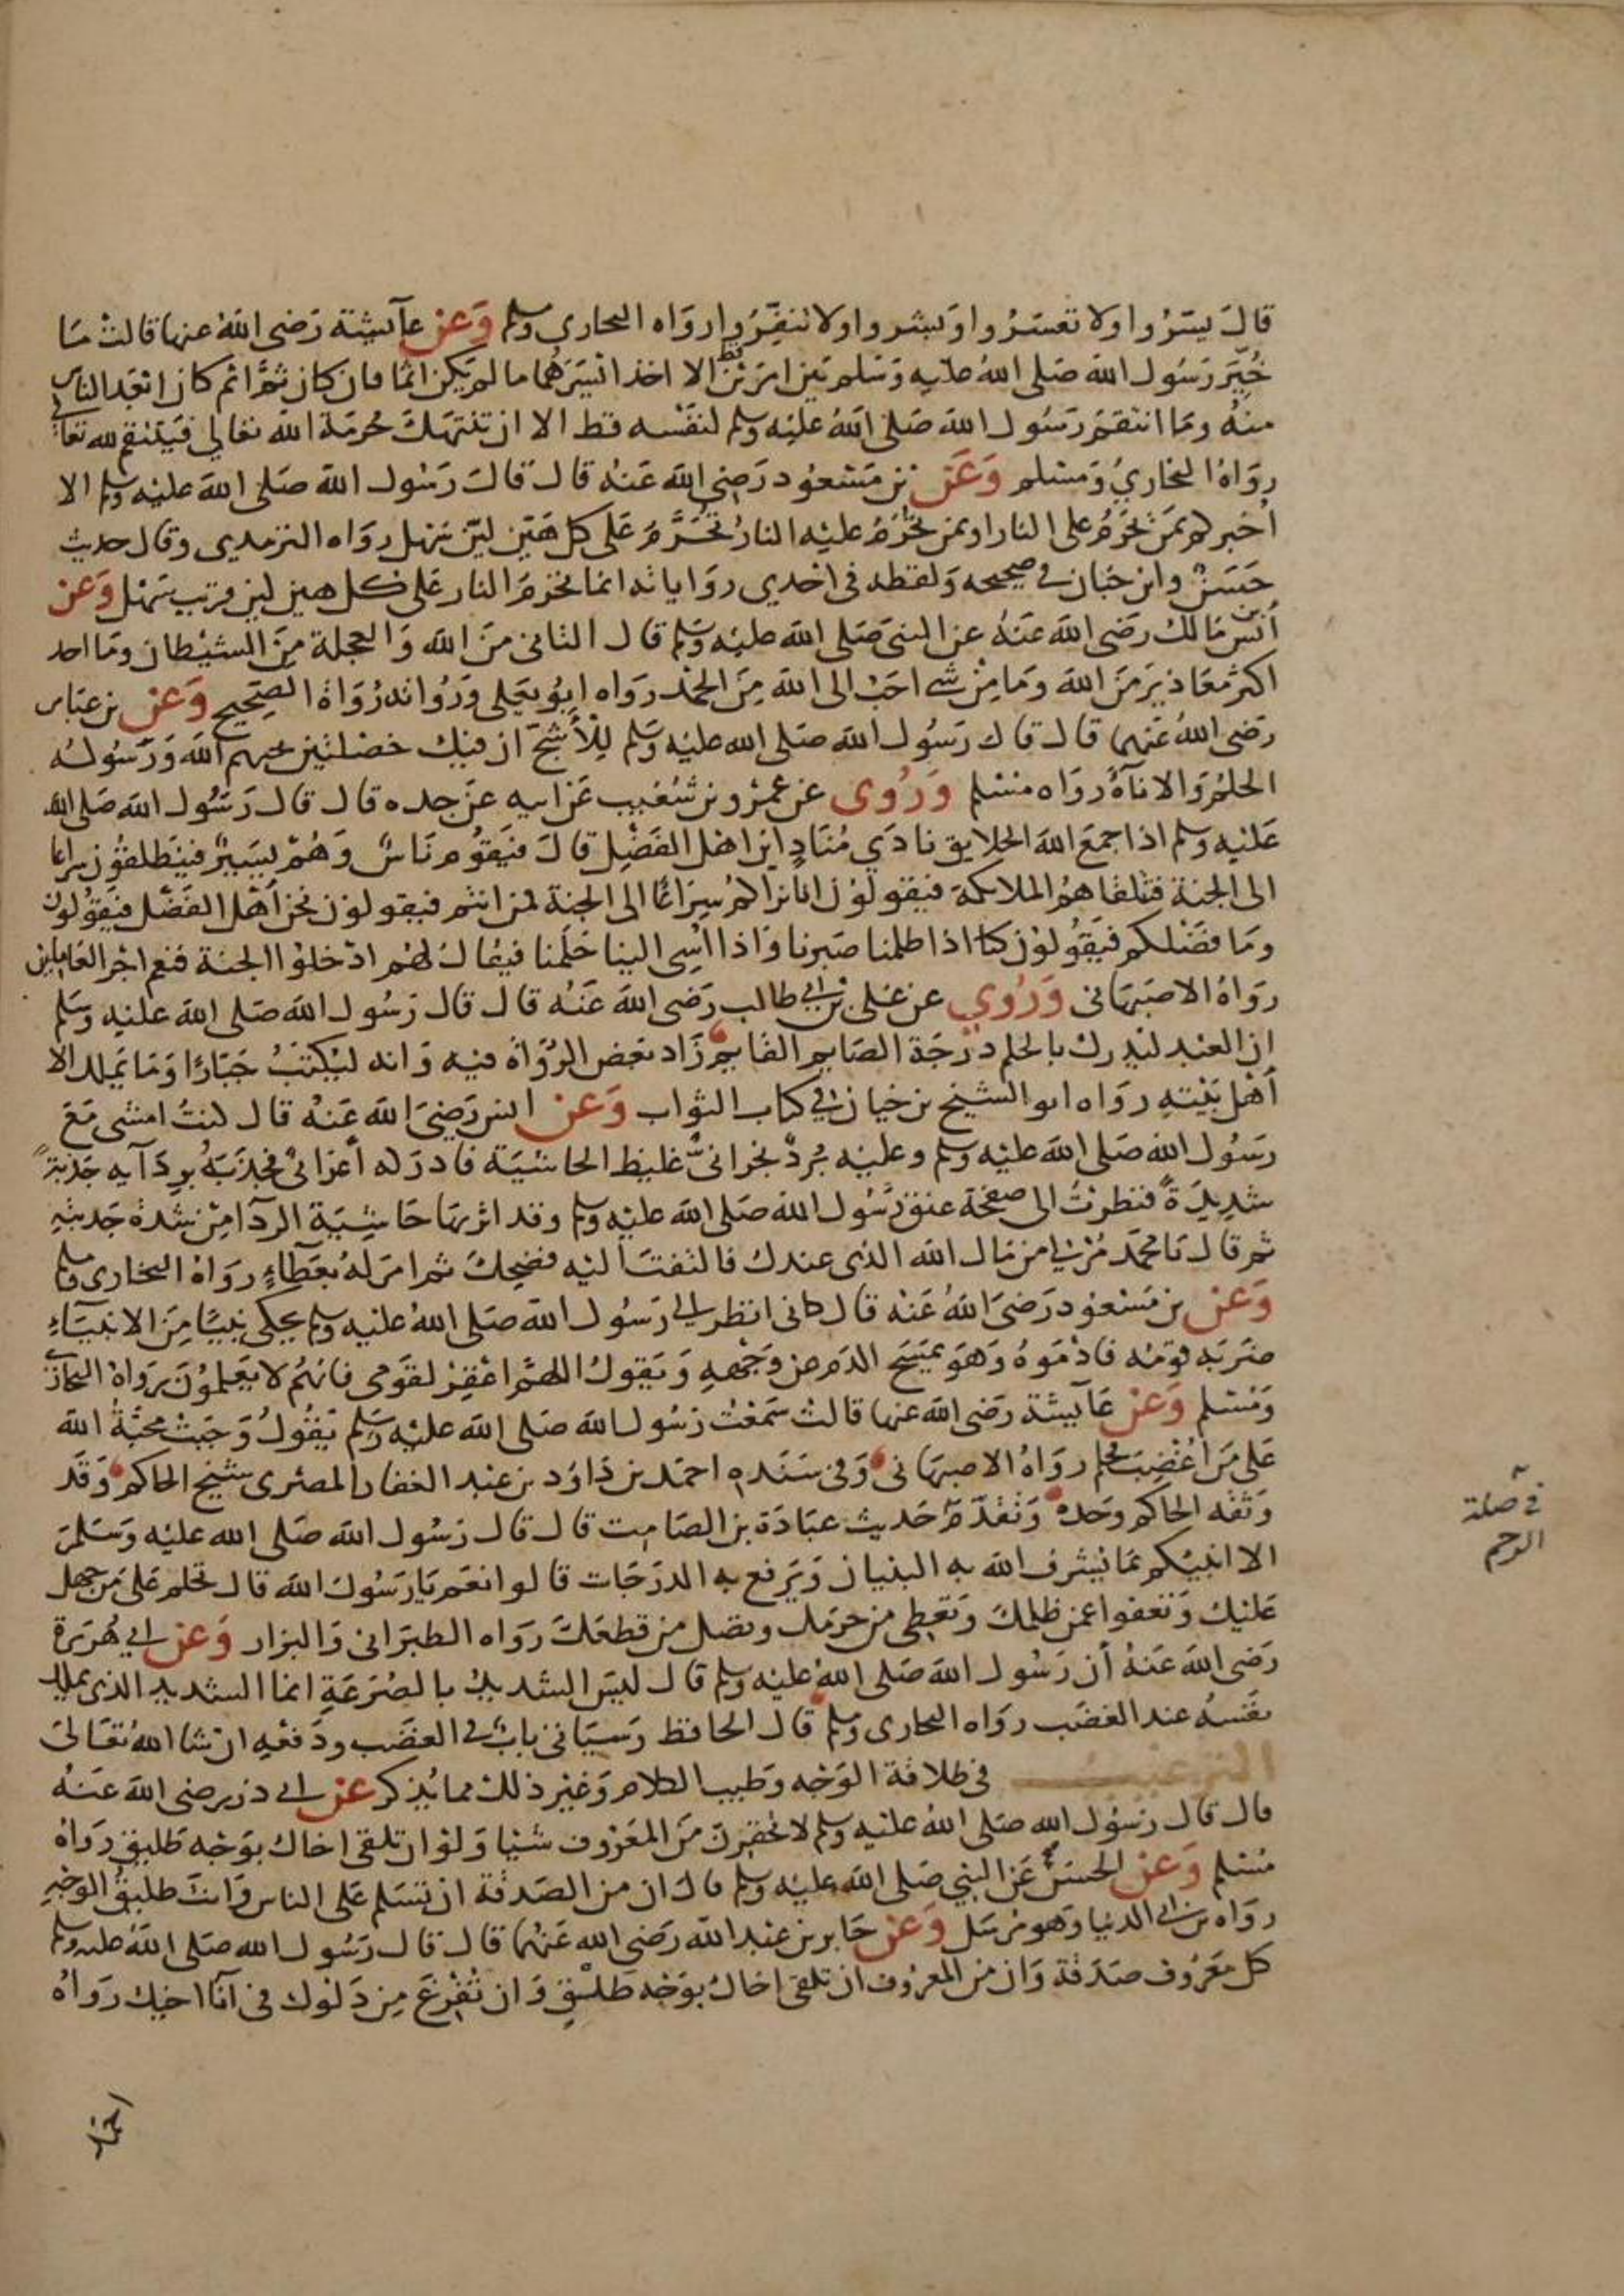 قال يسروا ولا تعسروا وبشروا ولا تنفروا رواه البخاري ومسلم وعن عآيشة رضي الله عنها قالت ما
خير رسول الله صلى الله عليه وسلم بين امرين قط الا اخذ ايسرهما ما لم يكن اثما فان كان ثم اثم كان ابعد الناس
منه وما انتقم رسول الله صلى الله عليه وسلم لنفسه قط الا ان تنتهك حرمة الله تعالى فينتقم لله تعالى
رواه البخاري ومسلم وعن بن مسعود رضي الله عنه قال قال رسول الله صلى الله عليه وسلم الا
اخبركم بمن يحرم على النار او بمن تحرم عليه النار تحرم على كل هين لين سهل رواه الترمدي وقال حديث
حسن وابن حبان في صحيحه ولفظه في احدي رواياته انما تحرم النار على كل هين لين قريب سهل وعن
أنس بن مالك رضي الله عنه عن النبي صلى الله عليه وسلم قال التاني من الله والعجلة من الشيطان وما احد
اكثر معاذير من الله وما من شي احب الى الله من الحمد رواه ابو يعلى ورواته رواة الصحيح وعن بن عباس
رضي الله عنهما قال قال رسول الله صلى الله عليه وسلم للأشج ان فيك خصلتين يحبهم الله ورسوله
الحلم والاناة رواه مسلم وروى عن عمرو بن شعيب عن ابيه عن جده قال قال رسول الله صلى الله
عليه وسلم اذا جمع الله الخلايق نادي مناد اين اهل الفضل قال فيقوم ناس وهم يسير فينطلقون سراعا
الى الجنة فتلقاهم الملايكة فيقولون انا نراكم سراعا الى الجنة فمن انتم فيقولون نحن أهل الفضل فيقولون
وما فضلكم فيقولون كنا اذا ظلمنا صبرنا واذا اسي الينا حلمنا فيقال لهم ادخلوا الجنة فنعم اجر العاملين
رواه الاصبهاني وروي عن على بن ابي طالب رضي الله عنه قال قال رسول الله صلى الله عليه وسلم
ان العبد ليدرك بالحلم درجة الصايم القايم زاد بعض الرواة فيه وانه ليكتب جبارا وما يملك الا
أهل بيته رواه ابو الشيخ بن حيان في كتاب الثواب وعن انس رضي الله عنه قال كنت امشى مع
رسول الله صلى الله عليه وسلم وعليه برد نجراني غليظ الحاشية فادركه أعرابي فجذبه بردآيه جذبة
شديدة فنظرت الى صفحة عنق رسول الله صلى الله عليه وسلم وقد اثر بها حاشية الردآ من شدة جذبته
ثم قال يا محمد مر لي من مال الله الذي عندك فالتفت اليه فضحك ثم امر له بعطاء رواه البخاري ومسلم
وعن بن مسعود رضي الله عنه قال كاني انظر الى رسول الله صلى الله عليه وسلم يحكى نبيا من الانبيآء
ضربه قومه فادموه وهو يمسح الدم عن وجهه ويقول اللهم اغفر لقومي فانهم لا يعلمون رواه البخاري
ومسلم وعن عآيشة رضي الله عنها قالت سمعت رسول الله صلى الله عليه وسلم يقول وجبت محبة الله
على من اغضب فحلم رواه الاصبهاني وفي سنده احمد بن داود بن عبد الغفار المصري شيخ الحاكم وقد
وثقه الحاكم وحده وتقدم حديث عبادة بن الصامت قال قال رسول الله صلى الله عليه وسلم
الا انبيكم بما يشرف الله به البنيان ويرفع به الدرجات قالوا نعم يا رسول الله قال تحلم على من جهل
عليك وتعفوا عمن ظلمك وتعطى من حرمك وتصل من قطعك رواه الطبراني والبزار وعن ابي هريرة
رضي الله عنه أن رسول الله صلى الله عليه وسلم قال ليس الشديد بالصرعة انما الشديد الذي يملك
نفسه عند الغضب رواه البخاري ومسلم قال الحافظ وسياتي باب في الغضب ودفعه ان شا الله تعالى
الترغيب في طلاقة الوجه وطيب الكلام وغير ذلك مما يذكر عن ابي ذر رضي الله عنه
قال قال رسول الله صلى الله عليه وسلم لا تحقرن من المعروف شيا ولو ان تلقى اخاك بوجه طليق رواه
مسلم وعن الحسن عن النبي صلى الله عليه وسلم قال ان من الصدقة ان تسلم على الناس وانت طليق الوجه
رواه بن ابي الدنيا وهو مرسل وعن جابر بن عبد الله رضي الله عنهما قال قال رسول الله صلى الله عليه وسلم
كل معروف صدقة وان من المعروف ان تلقى اخاك بوجه طلق وان تفرغ من دلوك في انآ اخيك رواه
في صلة
الرحم